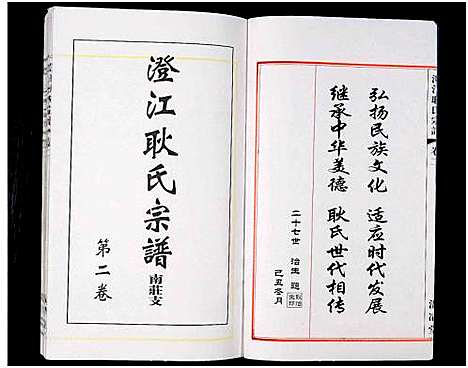 弘扬民族文化 适应时代发展
继承中华美德 耿氏世代相传
二十七世 治生 题
己丑冬月
澄江耿氏宗譜
南莊支
第二卷